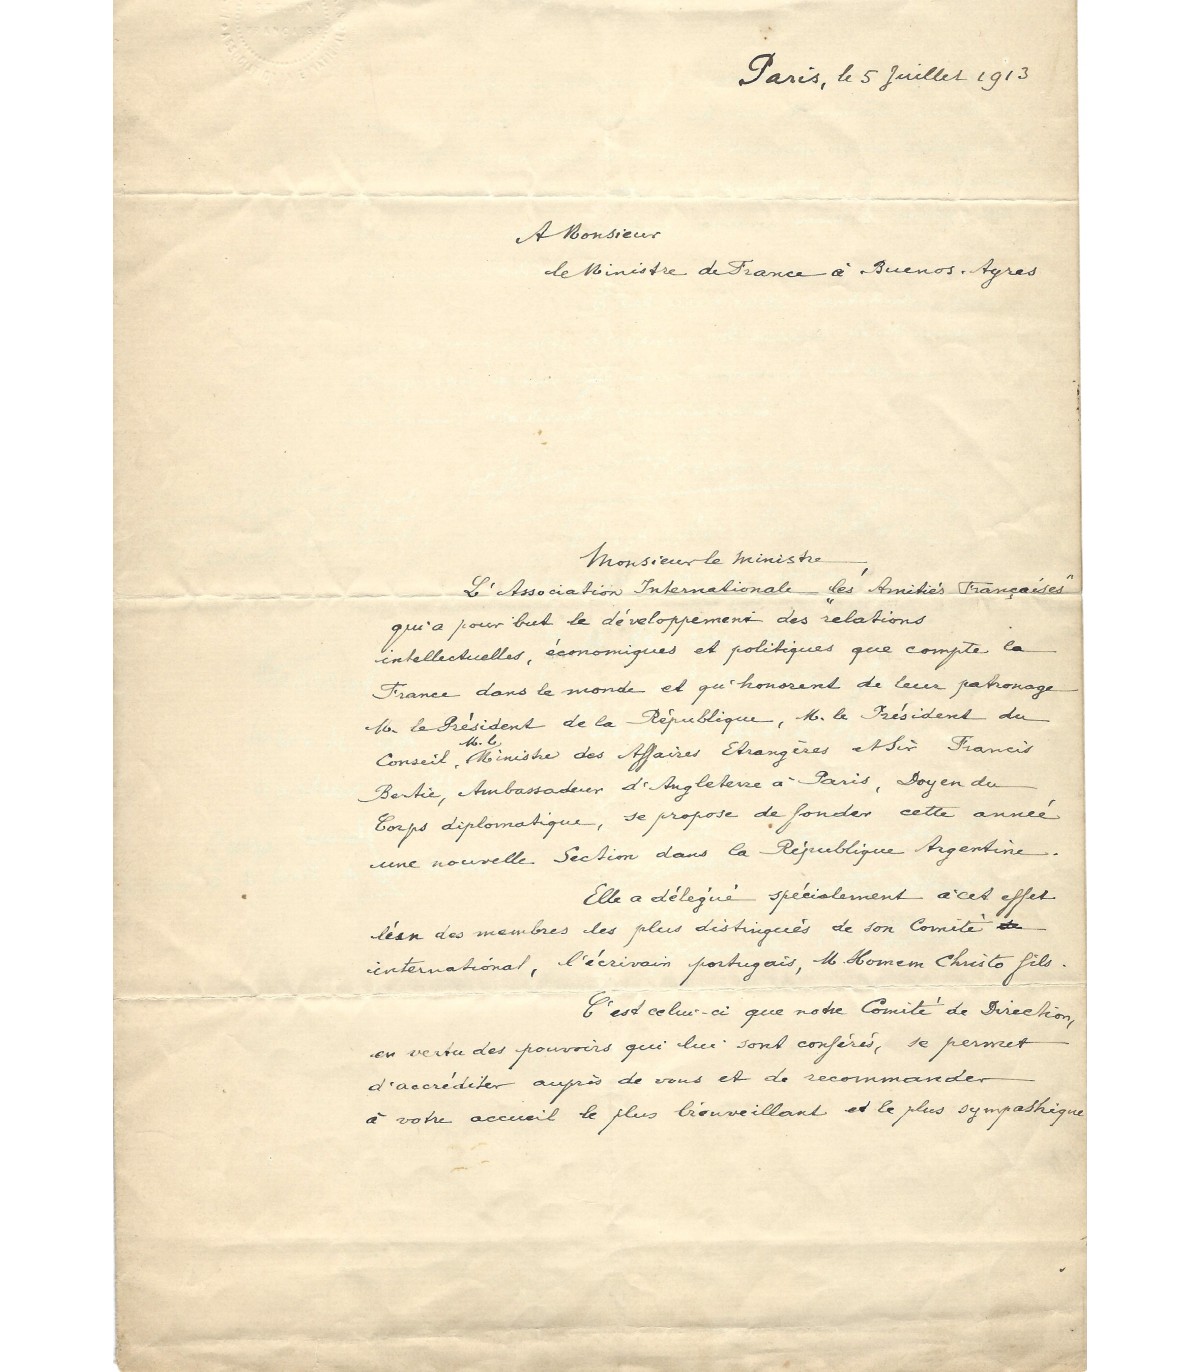 Paris, le 5 Juillet 1913
A Monsieur
le Ministre de France à Buenos-Ayres
Monsieur le Ministre,
L'Association Internationale "les Amitiés Françaises"
qui a pour but le développement des relations
intellectuelles, économiques et politiques que compte la
France dans le monde et qu'honorent de leur patronage
M. le Président de la République, M. le Président du
Conseil, M. le Ministre des Affaires Etrangères et Sir Francis
Bertie, Ambassadeur d'Angleterre à Paris, Doyen du
Corps diplomatique, se propose de fonder cette année
une nouvelle Section dans la République Argentine.
Elle a délégué spécialement à cet effet
des membres les plus distingués de son Comité
international, l'écrivain portugais, M. Homem Christo fils.
C'est celui-ci que notre Comité de Direction,
en vertu des pouvoirs qui lui sont conférés, se permet
d'accréditer auprès de vous et de recommander
à votre accueil le plus bienveillant et le plus sympathique